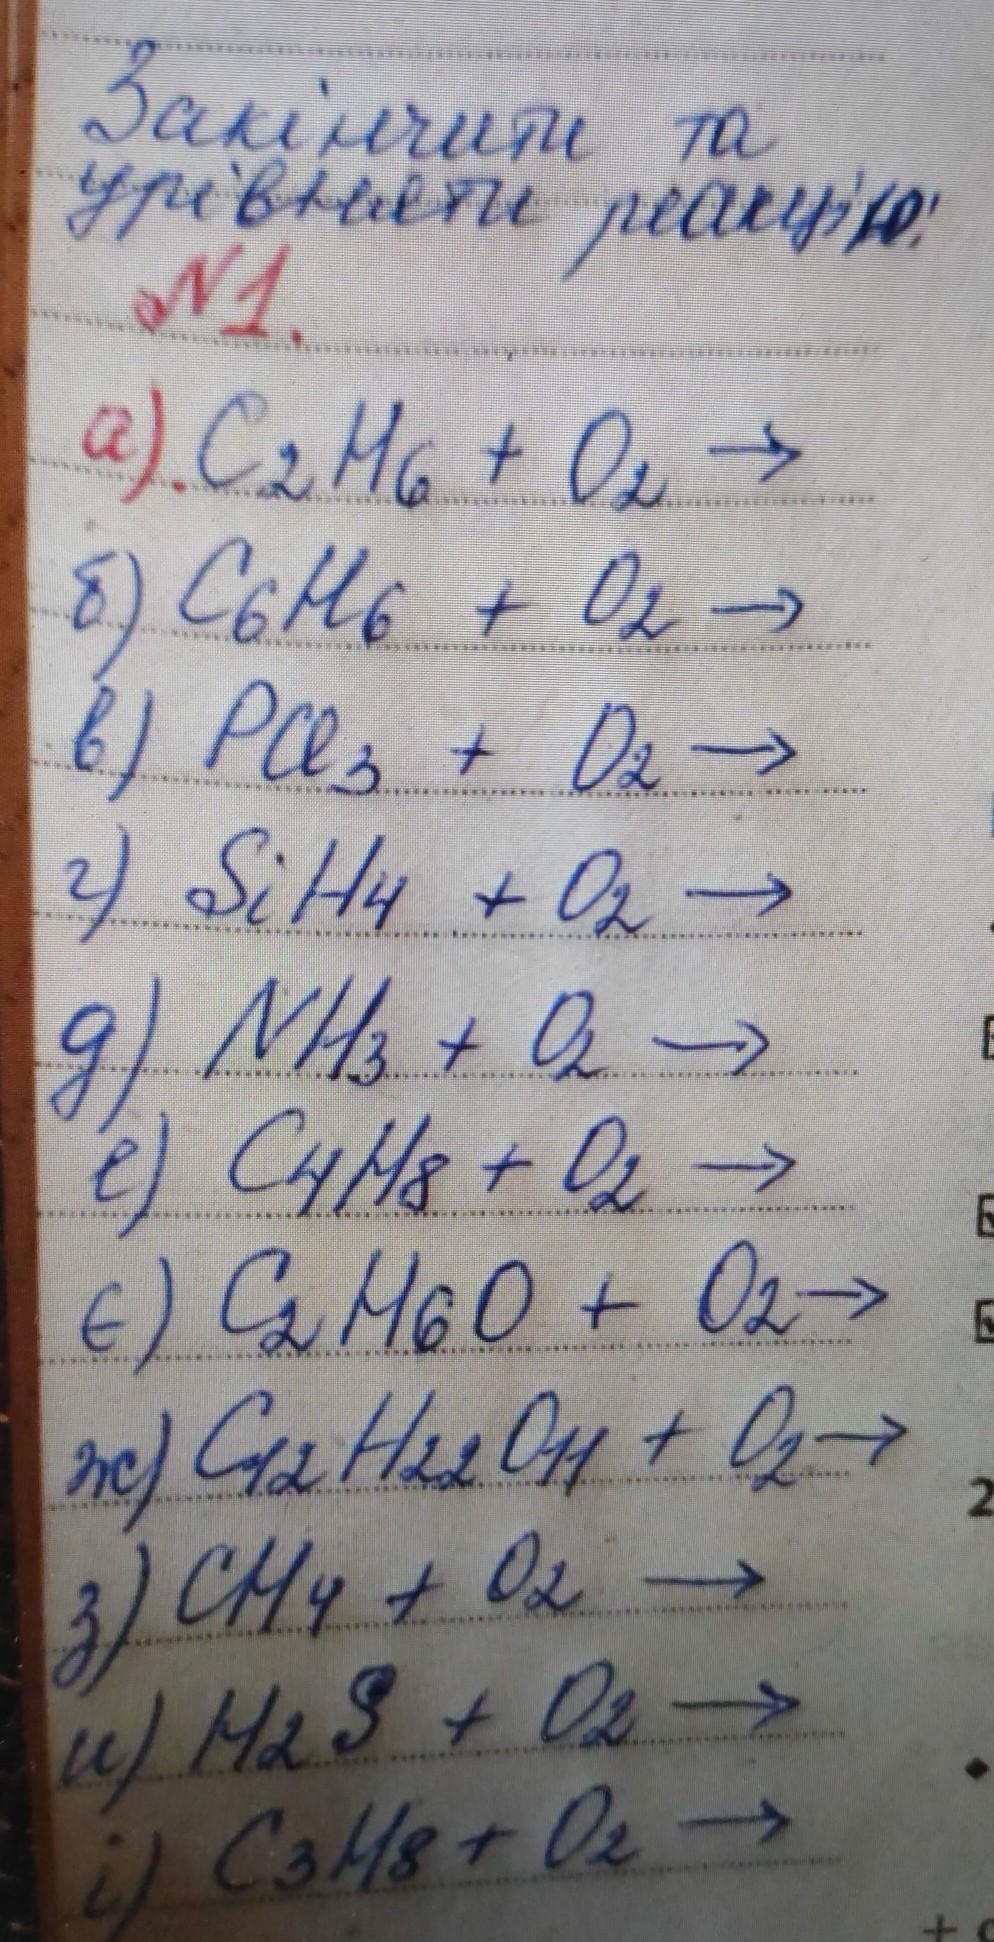 Закінчити та
урівняти реакцію:
№1.
а). C2H6 + O2 →
б) C6H6 + O2 →
в) PCl3 + O2 →
г) SiH4 + O2 →
д) NH3 + O2 →
е) C4H8 + O2 →
є) C2H6O + O2 →
ж) C12H22O11 + O2 →
з) CH4 + O2 →
и) H2S + O2 →
і) C3H8 + O2 →
2
+ c